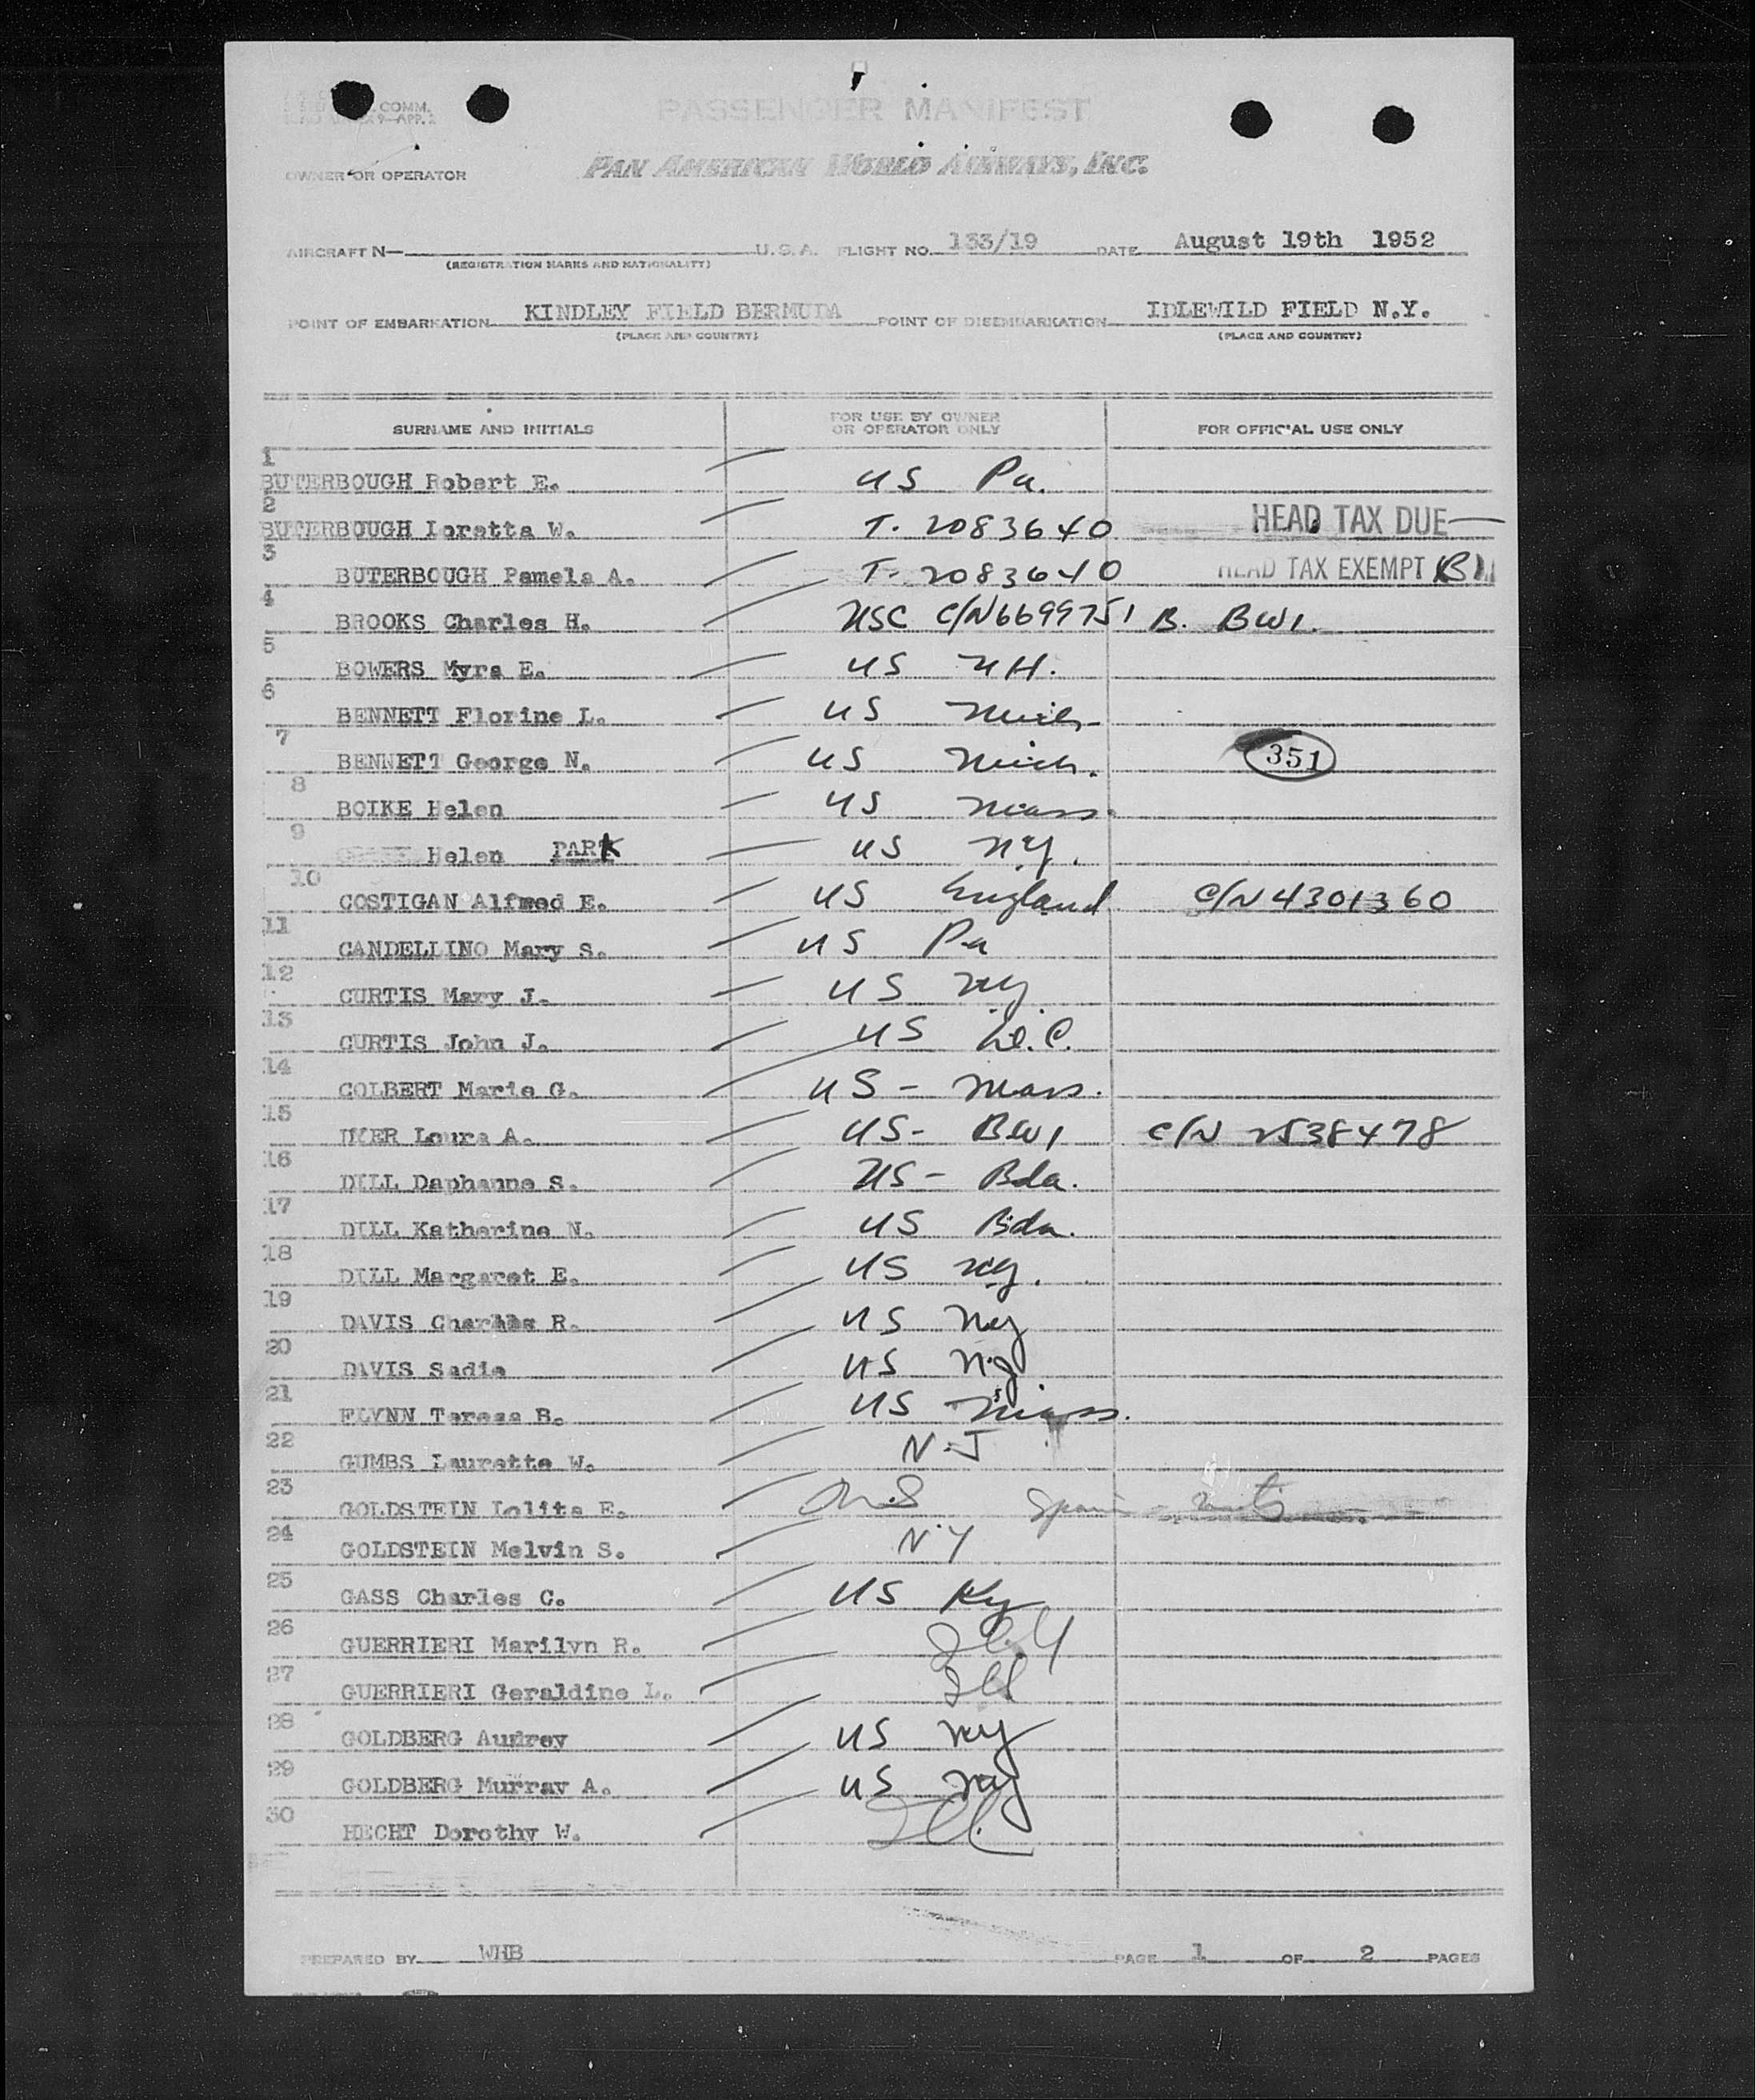 COMM.
9—APP. 2
PASSENGER MANIFEST
OWNER OR OPERATOR PAN AMERICAN WORLD AIRWAYS, INC.
AIRCRAFT N— U.S.A. FLIGHT NO. 133/19 DATE August 19th 1952
(REGISTRATION MARKS AND NATIONALITY)
POINT OF EMBARKATION KINDLEY FIELD BERMUDA POINT OF DISEMBARKATION IDLEWILD FIELD N.Y.
(PLACE AND COUNTRY) (PLACE AND COUNTRY)
SURNAME AND INITIALS FOR USE BY OWNER OR OPERATOR ONLY FOR OFFICIAL USE ONLY
1 BUTERBOUGH Robert E. US Pa.
2 BUTERBOUGH Loretta W. T. 2083640 HEAD TAX DUE
3 BUTERBOUGH Pamela A. T- 2083640 HEAD TAX EXEMPT
4 BROOKS Charles H. USC C/N6699751 B. BWI.
5 BOWERS Myra E. US NH.
6 BENNETT Florine L. US Mich
7 BENNETT George N. US Mich. 351
8 BOIKE Helen US Mass.
9 Helen PARK US NY.
10 COSTIGAN Alfred E. US England C/N 4301360
11 CANDELLINO Mary S. US Pa
12 CURTIS Mary J. US NY
13 CURTIS John J. US D.C.
14 COLBERT Marie G. US - Mass.
15 Loura A. US- BWI C/N 2538478
16 DILL Daphanne S. US - Bda.
17 DILL Katherine N. US Bda.
18 DILL Margaret E. US NY.
19 DAVIS Charles R. US NY
20 DAVIS Sadie US NY
21 FLYNN Teresa B. US Mass.
22 GUMBS Laurette W. N.J
23 GOLDSTEIN Lolita E. Spain
24 GOLDSTEIN Melvin S. N.Y
25 GASS Charles C. US Ky
26 GUERRIERI Marilyn R.
27 GUERRIERI Geraldine L.
28 GOLDBERG Audrey US NY
29 GOLDBERG Murray A. US NY
30 HECHT Dorothy W.
PREPARED BY WHB PAGE 1 OF 2 PAGES